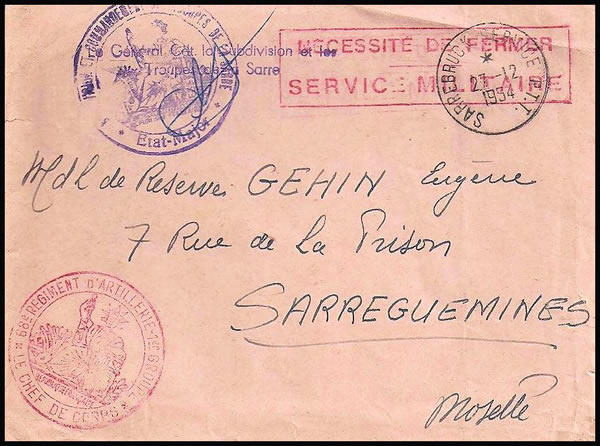 Le Général Cdt. la Subdivision et les
Troupes de la Sarre
Etat-Major
NÉCESSITÉ DE FERMER
SERVICE MILITAIRE
SARREBRUCK SERVICE P.T.T.
23-12
1934
Mdl de Reserve GEHIN Eugène
7 Rue de La Prison
SARREGUEMINES
Moselle
68e REGIMENT D'ARTILLERIE 1er GROUPE
LE CHEF DE CORPS